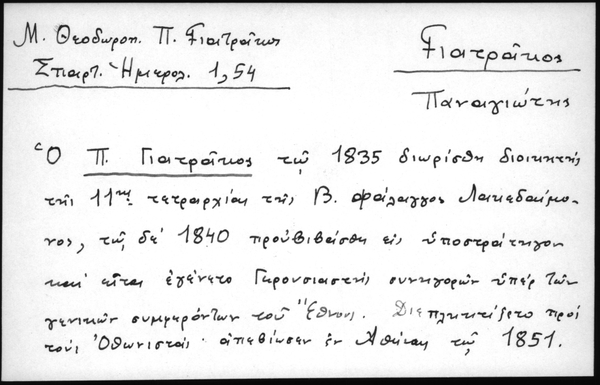 Μ. Θεοδωροπ. Π. Γιατράκος
Σπαρτ. Ἡμερολ. 1, 54
Γιατράκος
Παναγιώτης
Ὁ Π. Γιατράκος τῷ 1835 διωρίσθη διοικητής
τῆς 11ης τετραρχίας τῆς Β. φάλαγγος Λακεδαίμο-
νος, τῷ δὲ 1840 προὐβιβάσθη εἰς ὑποστράτηγον
καὶ εἶτα ἐγένετο Γερουσιαστής συνηγορῶν ὑπὲρ τῶν
γενικῶν συμφερόντων τοῦ Ἔθνους. Διεπληκτίζετο πρὸς
τοὺς Ὀθωνιστάς· ἀπεβίωσεν ἐν Ἀθήναις τῷ 1851.